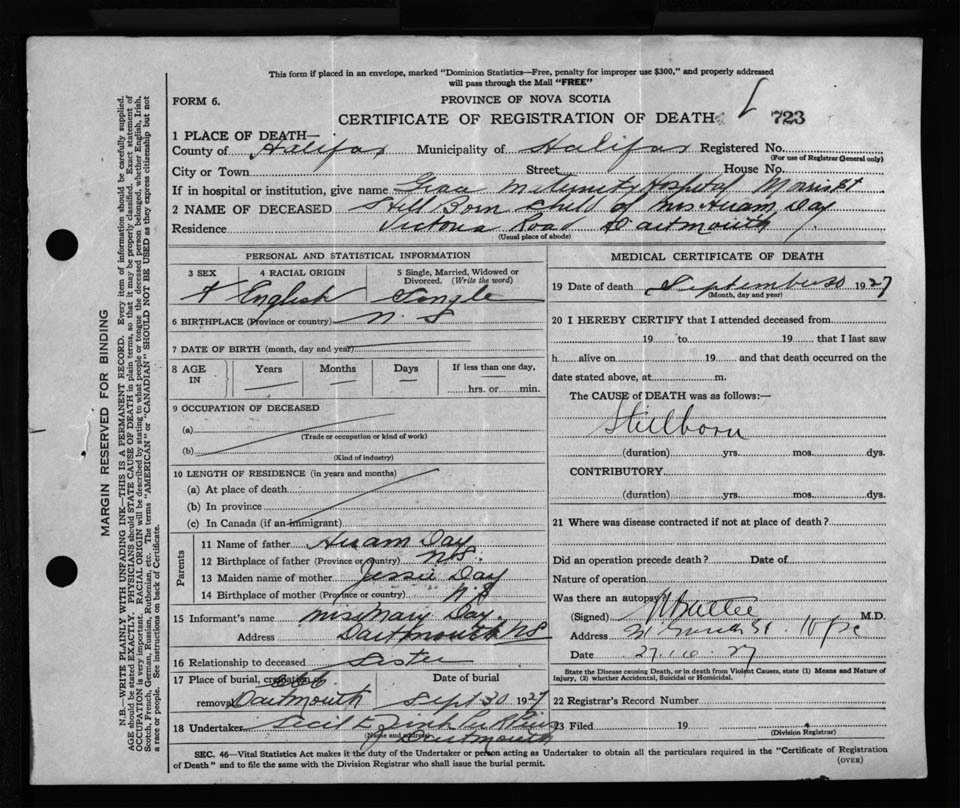 This form if placed in an envelope, marked "Dominion Statistics—Free, penalty for improper use $300," and properly addressed
will pass through the Mail "FREE"
FORM 6.
PROVINCE OF NOVA SCOTIA
CERTIFICATE OF REGISTRATION OF DEATH
723
1 PLACE OF DEATH—
County of Halifax Municipality of Halifax Registered No.
(For use of Registrar General only)
City or Town Street House No.
If in hospital or institution, give name Grace Maternity Hospital Morris St
2 NAME OF DECEASED Still Born Child of Mrs Hiram Day
Residence Victoria Road Dartmouth
(Usual place of abode)
PERSONAL AND STATISTICAL INFORMATION
3 SEX 4 RACIAL ORIGIN 5 Single, Married, Widowed or Divorced. (Write the word)
F English Single
6 BIRTHPLACE (Province or country) N. S
7 DATE OF BIRTH (month, day and year)
8 AGE IN Years Months Days If less than one day,
hrs. or min.
9 OCCUPATION OF DECEASED
(a)
(Trade or occupation or kind of work)
(b)
(Kind of industry)
10 LENGTH OF RESIDENCE (in years and months)
(a) At place of death
(b) In province
(c) In Canada (if an immigrant)
Parents
11 Name of father Hiram Day
12 Birthplace of father (Province or Country) N.S.
13 Maiden name of mother Jessie Day
14 Birthplace of mother (Province or country) N.S
15 Informant's name Miss Mary Day
Address Dartmouth NS
16 Relationship to deceased Sister
17 Place of burial, cremation or Date of burial
removal Dartmouth Sept 30 1927
18 Undertaker Cecil E
(Name and address) Dartmouth
MEDICAL CERTIFICATE OF DEATH
19 Date of death September 30 1927
(Month, day and year)
20 I HEREBY CERTIFY that I attended deceased from
19 to 19 that I last saw
h alive on 19 and that death occurred on the
date stated above, at m.
The CAUSE of DEATH was as follows:—
Stillborn
(duration) yrs. mos. dys.
CONTRIBUTORY
(duration) yrs. mos. dys.
21 Where was disease contracted if not at place of death?
Did an operation precede death? Date of
Nature of operation
Was there an autopsy
(Signed) M.D.
Address
Date 27.10.27
State the Disease causing Death, or in death from Violent Causes, state (1) Means and Nature of
Injury, (2) whether Accidental, Suicidal or Homicidal.
22 Registrar's Record Number
23 Filed 19
(Division Registrar)
SEC. 46—Vital Statistics Act makes it the duty of the Undertaker or person acting as Undertaker to obtain all the particulars required in the "Certificate of Registration
of Death" and to file the same with the Division Registrar who shall issue the burial permit.
(OVER)
MARGIN RESERVED FOR BINDING
N.B.—WRITE PLAINLY WITH UNFADING INK—THIS IS A PERMANENT RECORD. Every item of information should be carefully supplied.
AGE should be stated EXACTLY. PHYSICIANS should STATE CAUSE OF DEATH in plain terms, so that it may be properly classified. Exact statement of
OCCUPATION is very important. RACIAL ORIGIN will be described by stating to what people or tongue the deceased person belonged, whether English, Irish,
Scotch, French, German, Russian, Ruthenian, etc. The terms "AMERICAN" or "CANADIAN" SHOULD NOT BE USED as they express citizenship but not
a race or people. See instructions on back of Certificate.